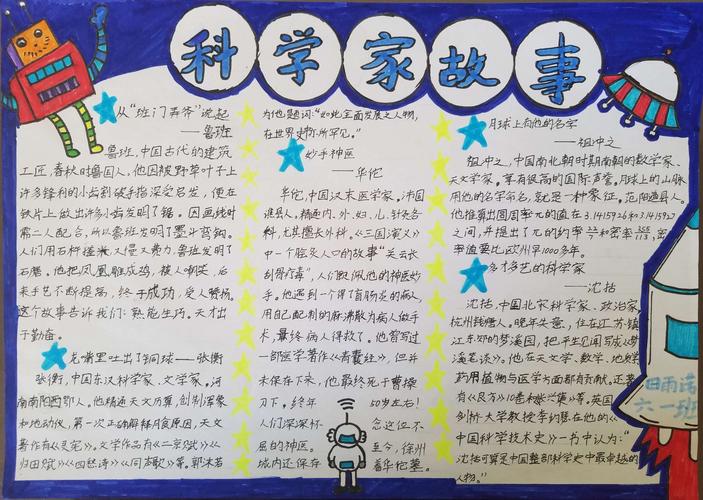 科学家故事
从“班门弄斧”说起
——鲁班
鲁班,中国古代的建筑
工匠,春秋时鲁国人,他因被野草叶子上
许多锋利的小齿割破手指深受启发,便在
铁片上做出许多小齿发明了锯。因画线时
需二人配合,所以鲁班发明了墨斗弯钩。
人们用石杵碰米又慢又费力鲁班发明了
石磨。他把凤凰雕成鸡,被人嘲笑,后
来手艺不断提高,终于成功,受人赞扬。
这个故事告诉我们:熟能生巧。天才出
于勤奋。
龙嘴里吐出了铜球——张衡
张衡,中国东汉科学家、文学家。河
南南阳西鄂人。他精通天文历算,创制浑象
和地动仪,第一次正确解释月食原因,天文
著作有《灵宪》。文学作品有《二京赋》《
归田赋》《四愁诗》《同声歌》等。郭沫若
为他题词:“如此全面发展之人物,
在世界史中亦所罕见。”
妙手神医
——华佗
华佗,中国汉末医学家。沛国
谯县人。精通内、外、妇、儿、针灸各
科,尤其擅长外科。《三国演义》
中一个脍炙人口的故事“关云长
刮骨疗毒”,人们都佩服他的神医妙
手。他遇到一个得了盲肠炎的病人,
用自己配制的麻沸散为病人做手
术,最终病人得救了。他曾写过
一部医学著作《青囊经》,但并
未保存下来,他最终死于曹操
刀下,终年50岁左右!
人们深深怀念这位不
屈的神医。至今,徐州
城内还保存着华佗墓。
月球上有他的名字
——祖冲之
祖冲之,中国南北朝时期南朝的数学家、
天文学家。享有很高的国际声誉。月球上的山脉
用他的名字命名,就是一种象征。范阳遒县人。
他推算出圆周率π的值在3.1415926和3.1415927
之间,并提出了π的约率22/7和密率355/113,密
率值要比欧州早1000多年。
多才多艺的科学家
——沈括
沈括,中国北宋科学家、政治家,
杭州钱塘人。晚年失意,住在江苏镇
江东郊的梦溪园,把平生见闻写成《梦
溪笔谈》。他在天文学、数学、地质学
药用植物与医学方面都有贡献。还著
有《良方》10卷和张兴图》等。英国
剑桥大学教授李约瑟在他的《
中国科学技术史》一书中认为:“
沈括可算是中国整部科学史中最卓越的
人物。”
田雨诺
六一班